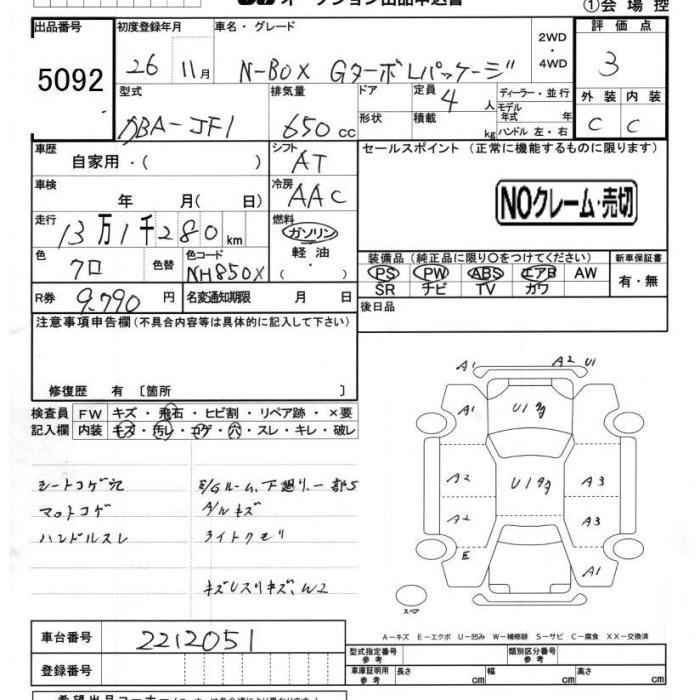 オークション出品申込書
①会場控
出品番号 初度登録年月 車名・グレード 2WD・4WD 評価点
5092 26 11月 N-BOX GターボLパッケージ 3
型式 排気量 ドア 定員 4 人 ディーラー・並行 外装 内装
DBA-JF1 650 cc 形状 積載 kg モデル年式 年 ハンドル 左・右 C C
車歴 シフト セールスポイント (正常に機能するものに限ります)
自家用・( ) AT
車検 冷房
年 月( 日) AAC NOクレーム・売切
走行 燃料
13万1千280km ガソリン
軽油
色 色替 色コード ( ・ ) 装備品 (純正品に限り○をつけてください) 新車保証書
クロ NH850X PS PW ABS エアB AW 有・無
SR ナビ TV カワ
R券 9,790 円 名変通知期限 月 日
後日品
注意事項申告欄 (不具合内容等は具体的に記入して下さい)
修復歴 有 〔箇所 〕
検査員 FW キズ・飛石・ヒビ割・リペア跡・×要
記入欄 内装 キズ・汚レ・コゲ・穴・スレ・キレ・破レ
シートコゲ穴 E/Gルーム、下廻り、一部S
マットコゲ A/Wキズ
ハンドルスレ ライトクモリ
キズUスリキズ、W2
A1 A2 U1
A1 U1
A2 U1 A3
A2 A3
E A1
スペア
A-キズ E-エクボ U-凹み W-補修跡 S-サビ C-腐食 XX-交換済
車台番号 2212051
登録番号
型式指定番号 参考 類別区分番号 参考
車庫証明用 参考 長さ cm 幅 cm 高さ cm